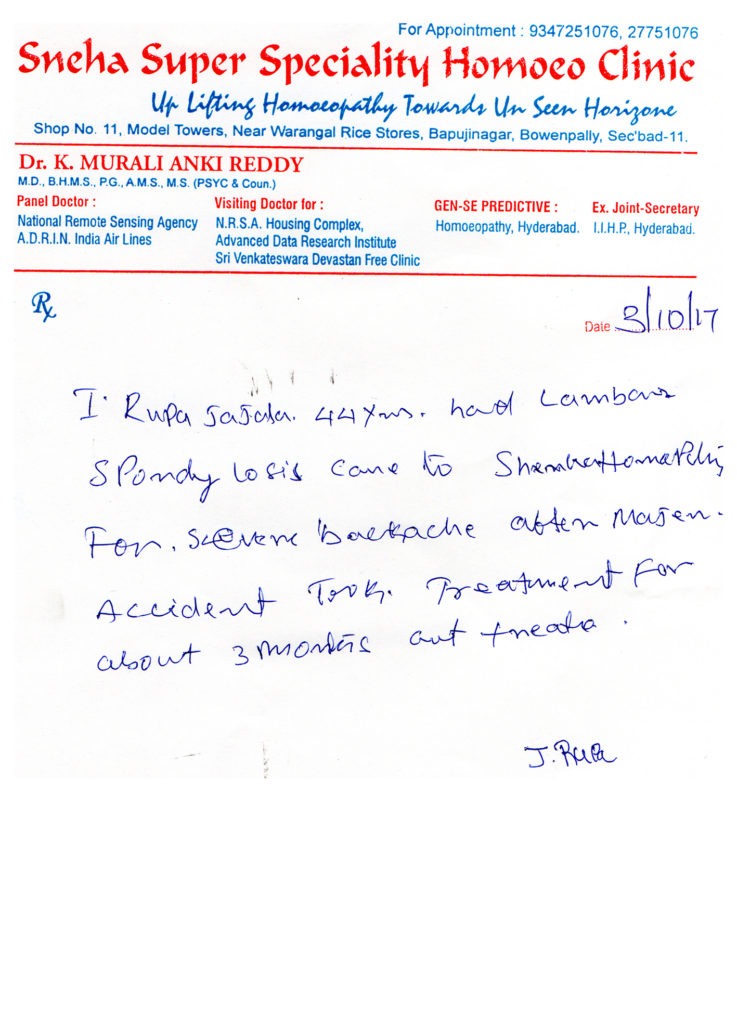 For Appointment : 9347251076, 27751076
Sneha Super Speciality Homoeo Clinic
Up Lifting Homoeopathy Towards Un Seen Horizone
Shop No. 11, Model Towers, Near Warangal Rice Stores, Bapujinagar, Bowenpally, Sec'bad-11.
Dr. K. MURALI ANKI REDDY
M.D., B.H.M.S., P.G., A.M.S., M.S. (PSYC & Coun.)
Panel Doctor :
National Remote Sensing Agency
A.D.R.I.N. India Air Lines
Visiting Doctor for :
N.R.S.A. Housing Complex,
Advanced Data Research Institute
Sri Venkateswara Devastan Free Clinic
GEN-SE PREDICTIVE :
Homoeopathy, Hyderabad.
Ex. Joint-Secretary
I.I.H.P., Hyderabad.
Rx
Date 3/10/17
I. Rupa Jajala. 44 Yrs. had Lambar
SPondylosis came to
For. severe backache after Major.
Accident Took. Treatment For
about 3 months
J. Rupa